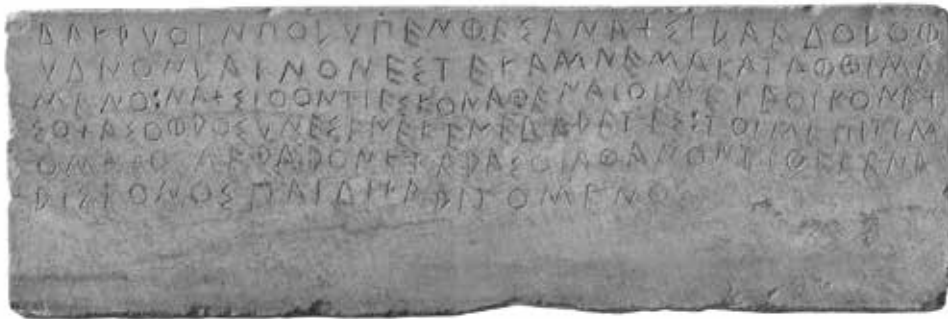 ΔΑΚΡΥΟΕΝΠΟΛΥΠΕΝΘΕΣΑΝΑΧΣΙΛΑΕΔΟΛΟΦ
ΥΔΝΟΝΛΑΙΝΟΝΕΣΤΕΚΑΜΝΕΜΑΚΑΤΑΦΘΙΜ
ΜΕΝΟ:ΝΑΧΣΙΟΟΝΤΙΕΣΚΟΝΑΘΕΝΑΙΟΙΜΕΤΕΟΙΚΟΝΕΧ
ΣΟΧΑΣΟΦΡΟΣΥΝΕΣΕΝΕΚΕΝΕΔΑΡΕΤΕΣ:ΤΟΙΜΕΠΙΤΙΜ
ΟΜΑΧΟΣΓΕΡΑΡΟΝΚΤΕΡΑΣΟΙΑΘΑΝΟΝΤΙΘΕΚΕΝΑ
ΡΙΣΤΟΝΟΣΠΑΙΔΙΧΑΡΙΖΟΜΕΝΟΣ